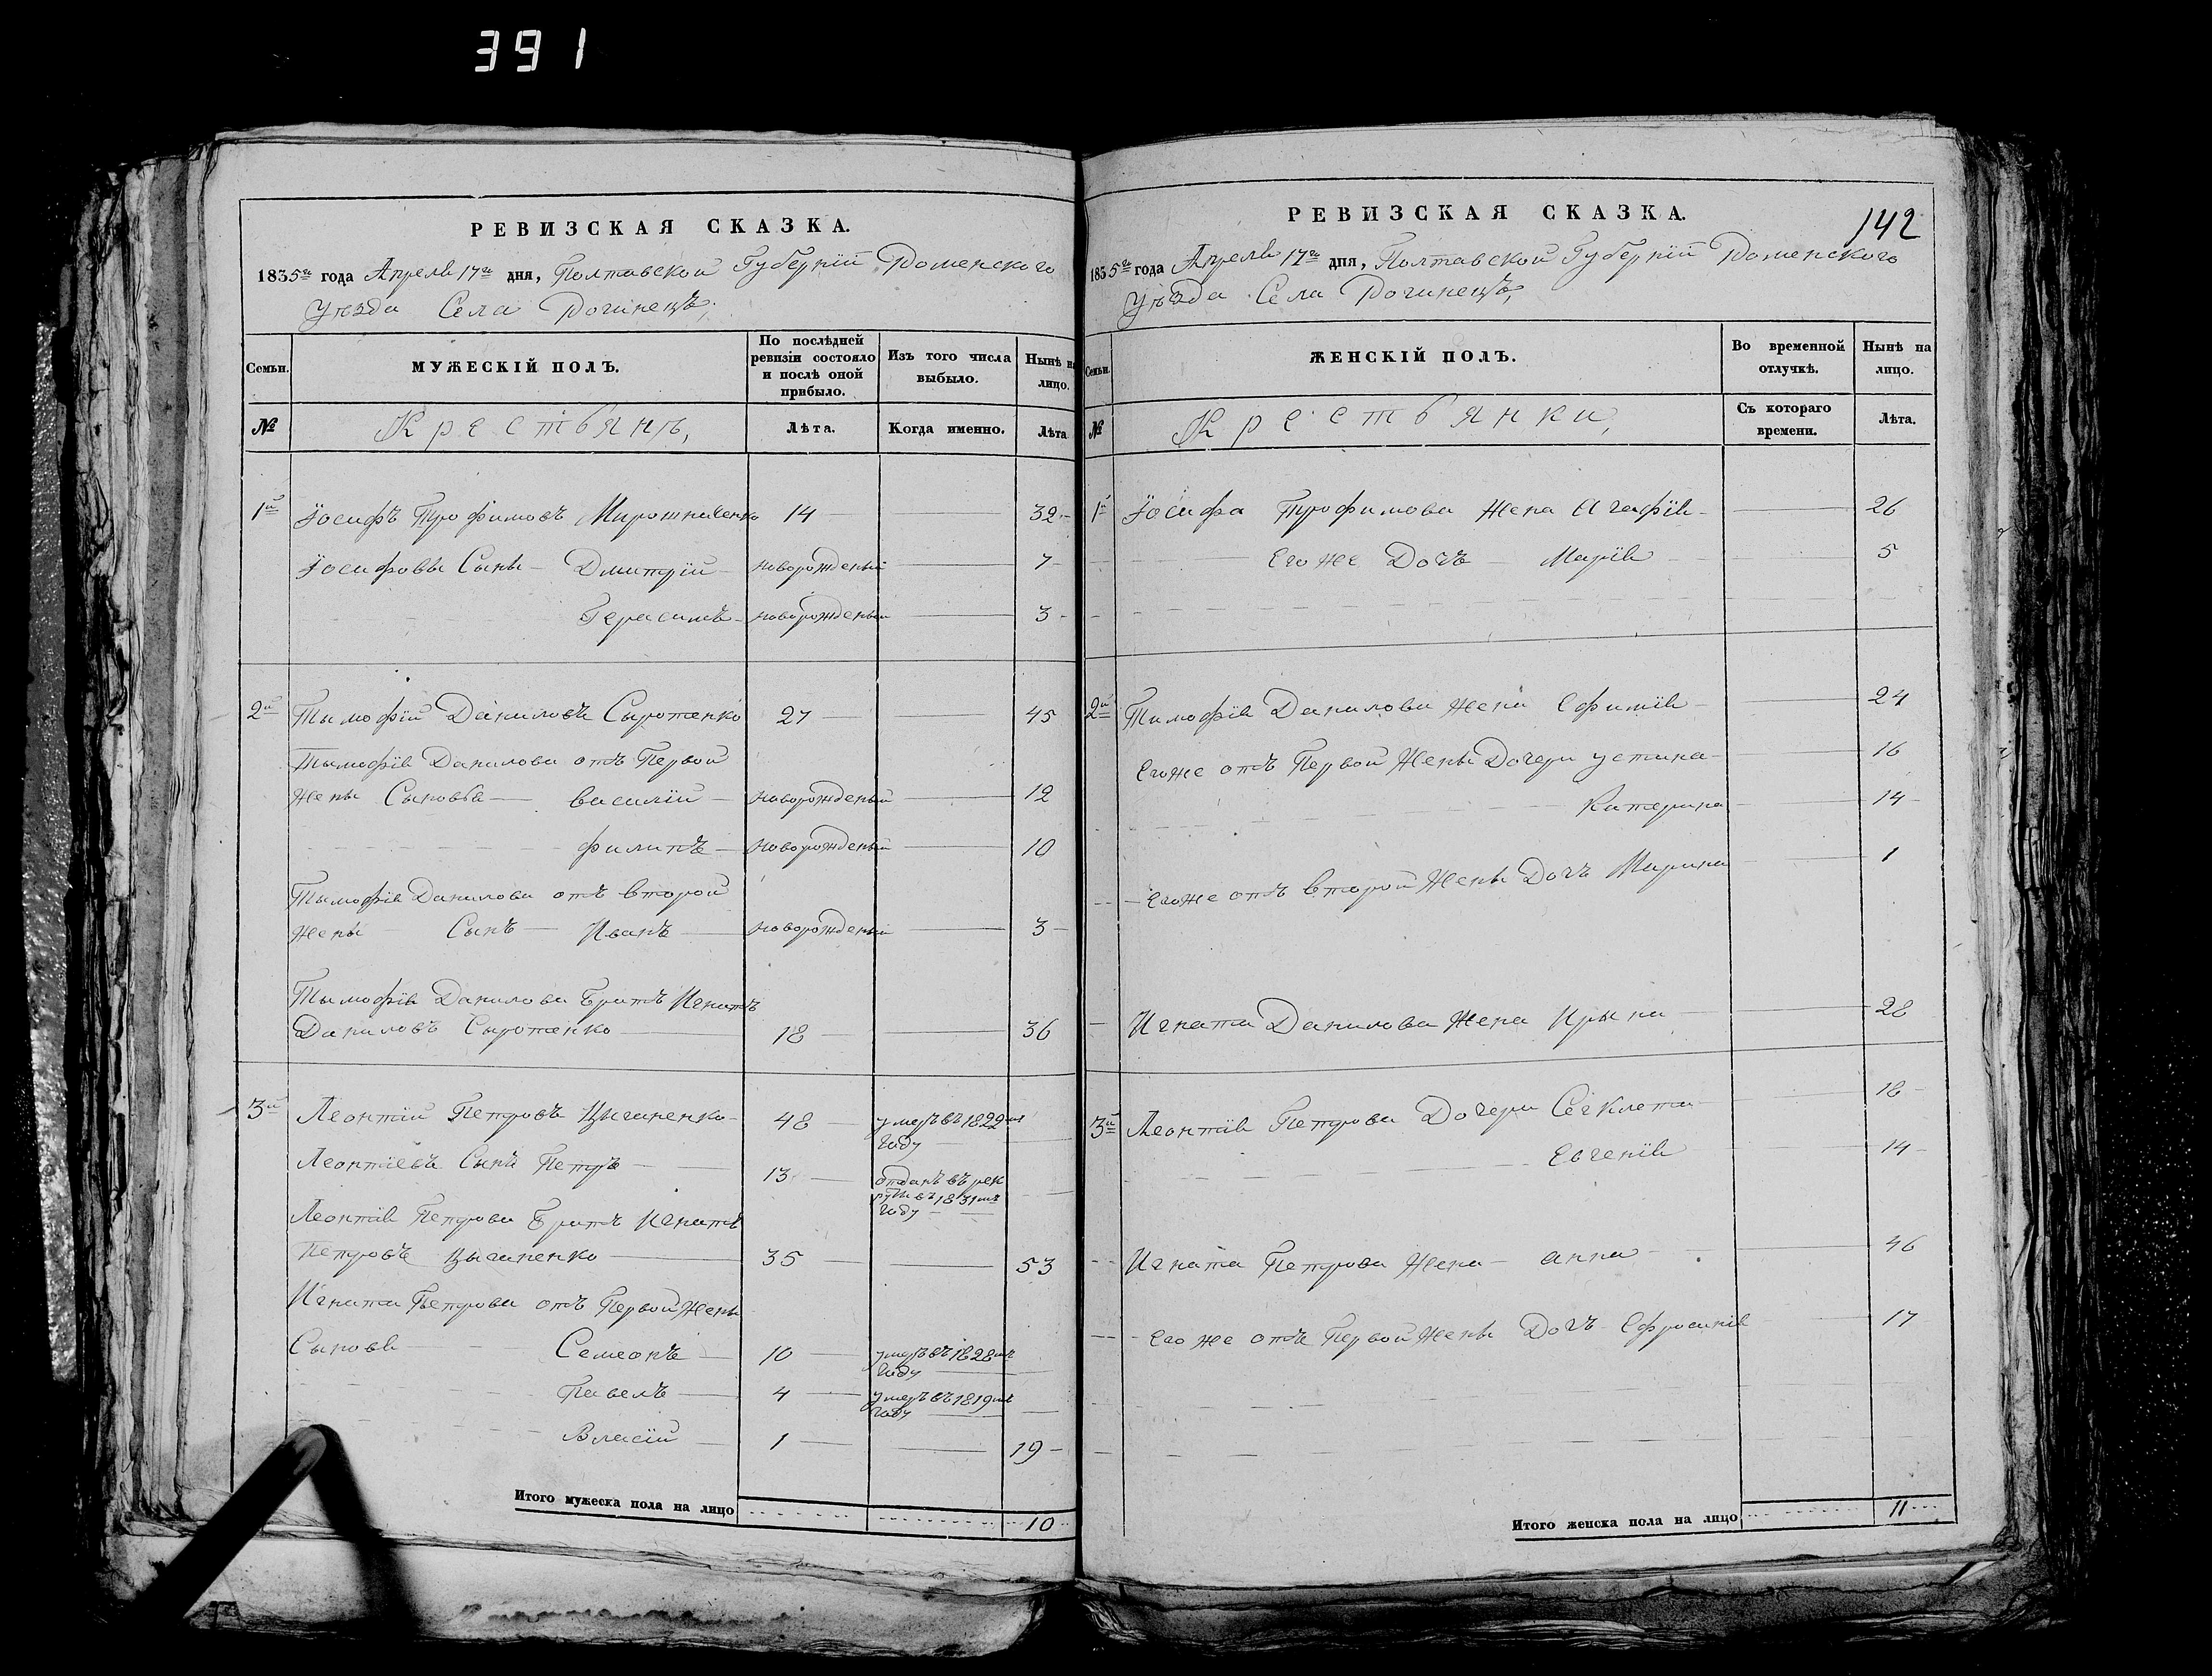 391
РЕВИЗСКАЯ СКАЗКА.
1835го года Апреля 17го дня, Полтавской Губернїи Роменского
Уезда Села Рогинецъ,
Семьи.
МУЖЕСКІЙ ПОЛЪ.
По послѣдней ревизіи состояло и послѣ оной прибыло.
Изъ того числа выбыло.
Нынѣ на лицо.
№
Крестьянъ,
Лѣта.
Когда именно.
Лѣта
1й Іосифъ Трофимовъ Мирошниченко 14 32
Іосифовы Сыны Дмитрїй новорожденый 7
Герасимъ новорожденый 3
2й Тымофїй Даниловъ Сыротенко 27 45
Тымофїя Данилова отъ Первой
жены Сыновья Василїй новорожденый 12
Филипъ новорожденый 10
Тымофїя Данилова отъ второй
жены Сынъ Иванъ новорожденый 3
Тымофїя Данилова Братъ Игнатъ
Даниловъ Сыротенко 18 36
3й Леонтїй Петровъ Цыганенко 48 умеръ въ 1829мъ
Году
Леонтїевъ Сынъ Петръ 13 отданъ въ рек
руты въ 1831мъ
Году
Леонтїя Петрова Братъ Игнатъ
Петровъ Цыганенко 35 53
Игната Петрова отъ Первой жены
Сыновя Семеонъ 10 умеръ въ 1828мъ
Году
Павелъ 4 умеръ въ 1819мъ
Году
Власїй 1 19
Итого мужеска пола на лицо 10
142
РЕВИЗСКАЯ СКАЗКА.
1835го года Апреля 17го дня, Полтавской Губернїи Роменского
Уѣзда Села Рогинецъ,
Семьи.
ЖЕНСКІЙ ПОЛЪ.
Во временной отлучкѣ.
Нынѣ на лицо.
№
Крестьянки,
Съ котораго времени.
Лѣта.
1й Іосифа Трофимова Жена Агафїя 26
Его же Дочъ Марїя 5
2й Тимофїя Данилова Жена Ефимїя 24
Его же отъ Первой Жены Дочери Устина 16
Катерина 14
Его же отъ второй Жены Дочъ Марина 1
Игната Данилова Жена Ирына 28
3й Леонтїя Петрова Дочери Сегклета 18
Евгенїя 14
Игната Петрова Жена анна 46
Его же отъ Первой Жены Дочъ Ефросинїя 17
Итого женска пола на лицо 11